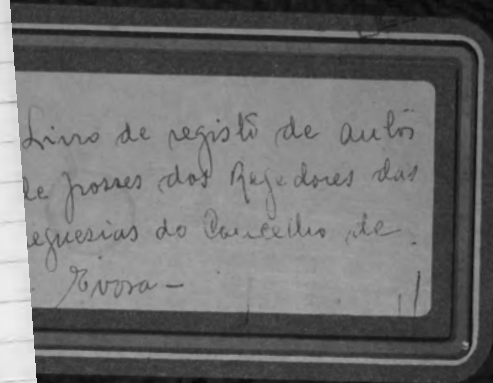 Livro de registo de autos
de posses dos Regedores das
eguezias do Concelho de
Evora -